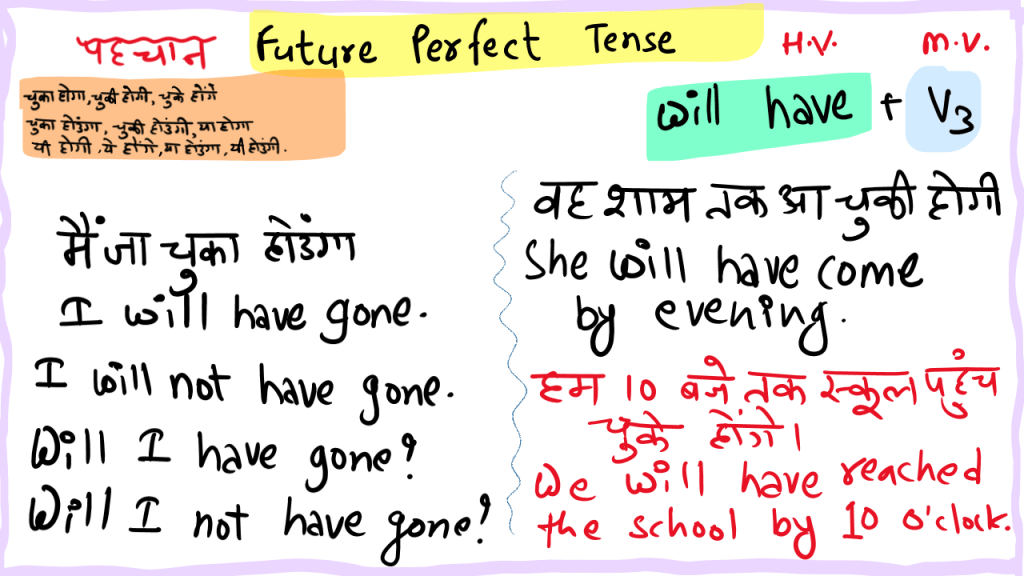 पहचान Future Perfect Tense H.V. M.V.
चुका होगा, चुकी होगी, चुके होंगें
चुका होउंगा, चुकी होउंगी, या होगा
यी होगी, ये होंगे, या होउंगा, यी होउंगी.
will have + V3
मैं जा चुका होउंगा
I will have gone.
I will not have gone.
Will I have gone?
Will I not have gone?
वह शाम तक आ चुकी होगी
She will have come
by evening.
हम 10 बजे तक स्कूल पहुंच
चुके होंगे।
We will have reached
the school by 10 o'clock.